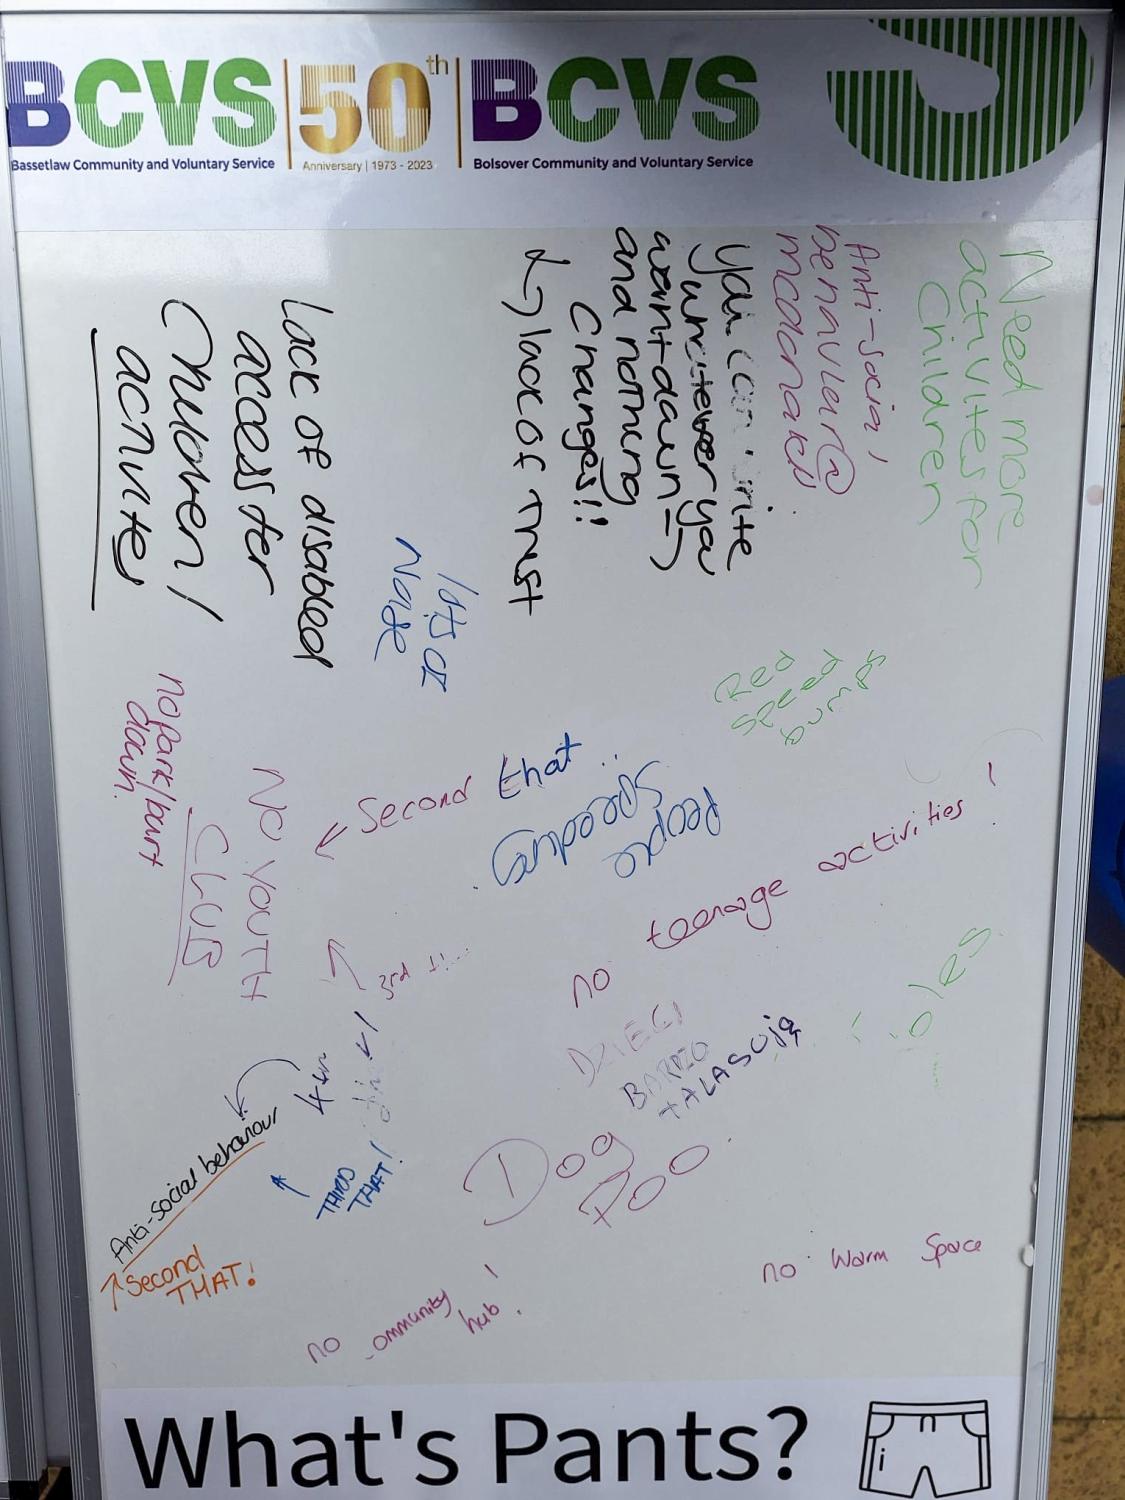 BCVS
Bassetlaw Community and Voluntary Service
50th
Anniversary | 1973 - 2023
BCVS
Bolsover Community and Voluntary Service
Need more
activites for
Children
Anti-social
behaviuer@
mcdonalds
You can write
whatever you
want down
and nothing
Changes!!
↳ lack of trust
lots of
Nose
Lack of disabled
access for
Children /
activites
Red
Speed
Bumps
no park / burt
down.
← Second that..
People
Speeding
NO YOUTH
CLUB
no teenage activities!
3rd it!...
4th
DZIECI
BARDZO
HALASUJĄ
Dog
Poo
Anti-social behaviour
↑ Second
THAT!
THIRD
THAT!
no Warm Space
no community
hub!
What's Pants?